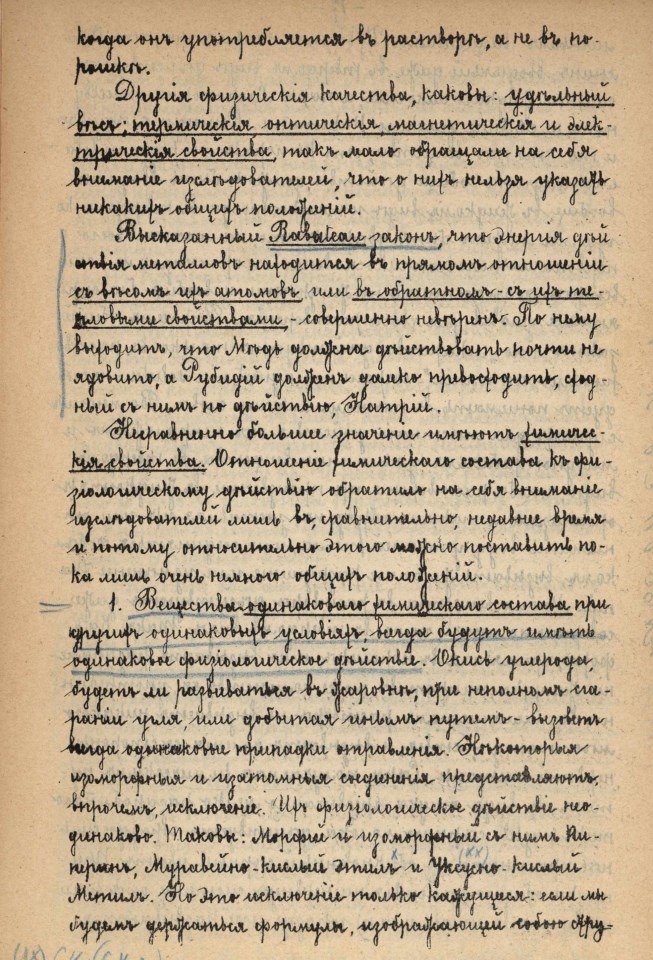 когда онъ употребляется въ растворѣ, а не въ по-
рошкѣ.
Другія физическія качества, каковы: удѣльный
вѣсъ; термическія, оптическія, магнетическія и элек-
трическія свойства, такъ мало обращали на себя
вниманіе изслѣдователей, что о нихъ нельзя указать
никакихъ общихъ положеній.
Высказанный Rabuteau законъ, что энергія дѣй
ствія металловъ находится въ прямомъ отношеніи
съ вѣсомъ ихъ атомовъ, или въ обратномъ - съ ихъ те-
пловыми свойствами, - совершенно невѣренъ. По нему
выходитъ, что Мѣдь должна дѣйствовать почти не
ядовито, а Рубидій долженъ далеко превосходить, сход-
ный съ нимъ по дѣйствію, Натрій.
Несравненно большее значеніе имѣютъ химичес-
кія свойства. Отношеніе химическаго состава къ фи-
зіологическому дѣйствію обратило на себя вниманіе
изслѣдователей лишь въ, сравнительно, недавнее время
и потому относительно этого можно поставить по-
ка лишь очень немного общихъ положеній.
1. Вещества одинаковаго химическаго состава при
другихъ одинаковыхъ условіяхъ, всегда будутъ имѣть
одинаковое физіологическое дѣйствіе. Окись углерода,
будетъ ли развиваться въ жаровнѣ, при неполномъ сга-
раніи угля, или добытая инымъ путемъ - вызоветъ
всегда одинаковые припадки отравленія. Нѣкоторыя
изоморфныя и изатомныя соединенія представляютъ,
впрочемъ, исключеніе. Ихъ физіологическое дѣйствіе нео-
динаково. Таковы: Морфій и изоморфный съ нимъ Пи-
перинъ, Муравейно-кислый этилъ x и Уксусно-кислый (xx)
Метилъ. Но это исключеніе только кажущееся: если мы
будемъ держаться формулы, изображающей собою гру-